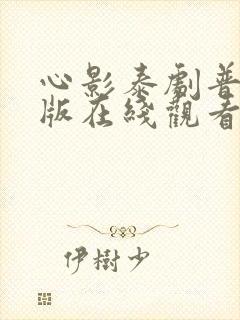 心影泰劇普
版在綫觀看
伊樹少